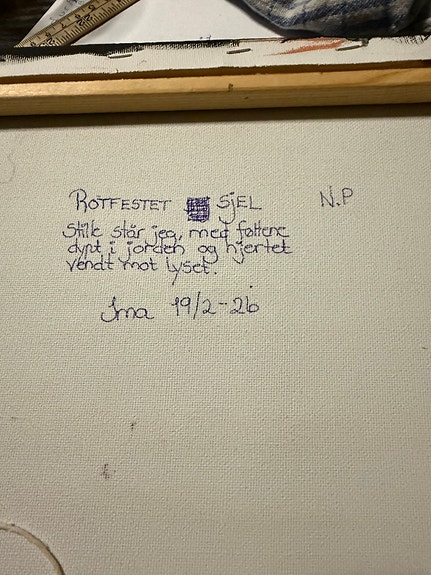 ROTFESTET SJEL N.P
Stille står jeg, med føttene
dypt i jorden og hjertet
vendt mot lyset.
Ima 19/2-26